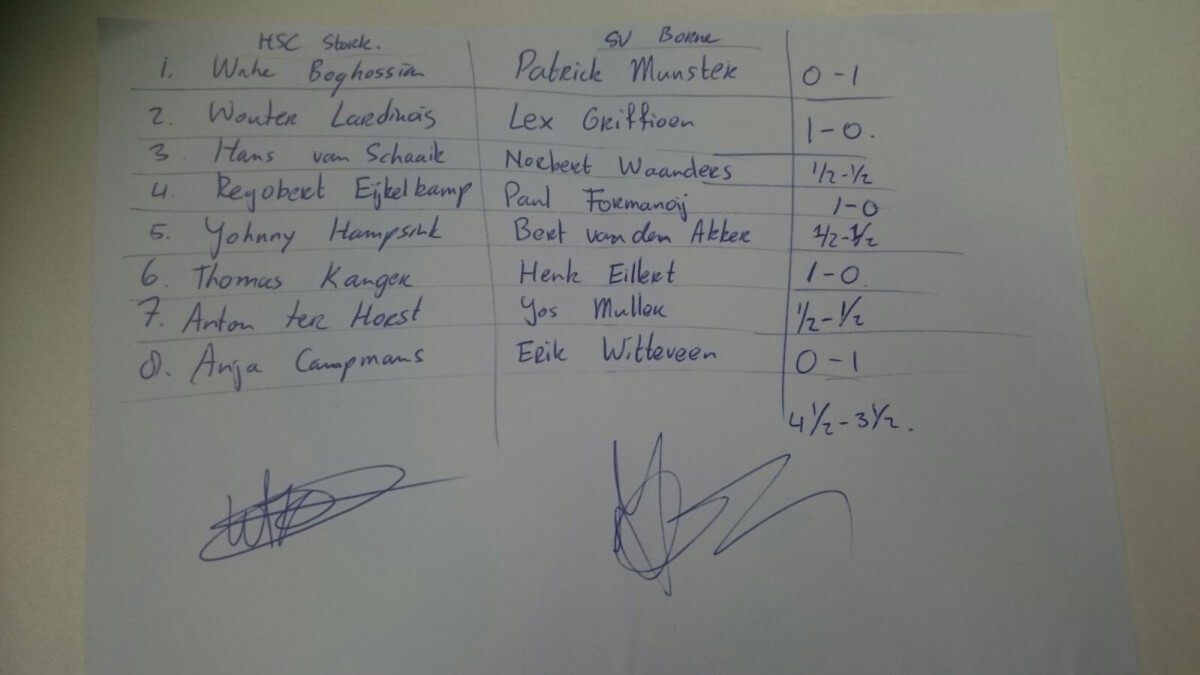 HSC Storck. SV Borne
1. Wahe Boghossian Patrick Munster 0-1
2. Wouter Lardinois Lex Griffioen 1-0.
3. Hans van Schaaik Norbert Waanders 1/2-1/2
4. Regobert Eijkelkamp Paul Formanoij 1-0
5. Yohnny Hampsink Bert van den Akker 1/2-1/2
6. Thomas Kanger Henk Eillert 1-0
7. Anton ter Horst Yos Muller 1/2-1/2
8. Anja Campmans Erik Witteveen 0-1
4 1/2-3 1/2.